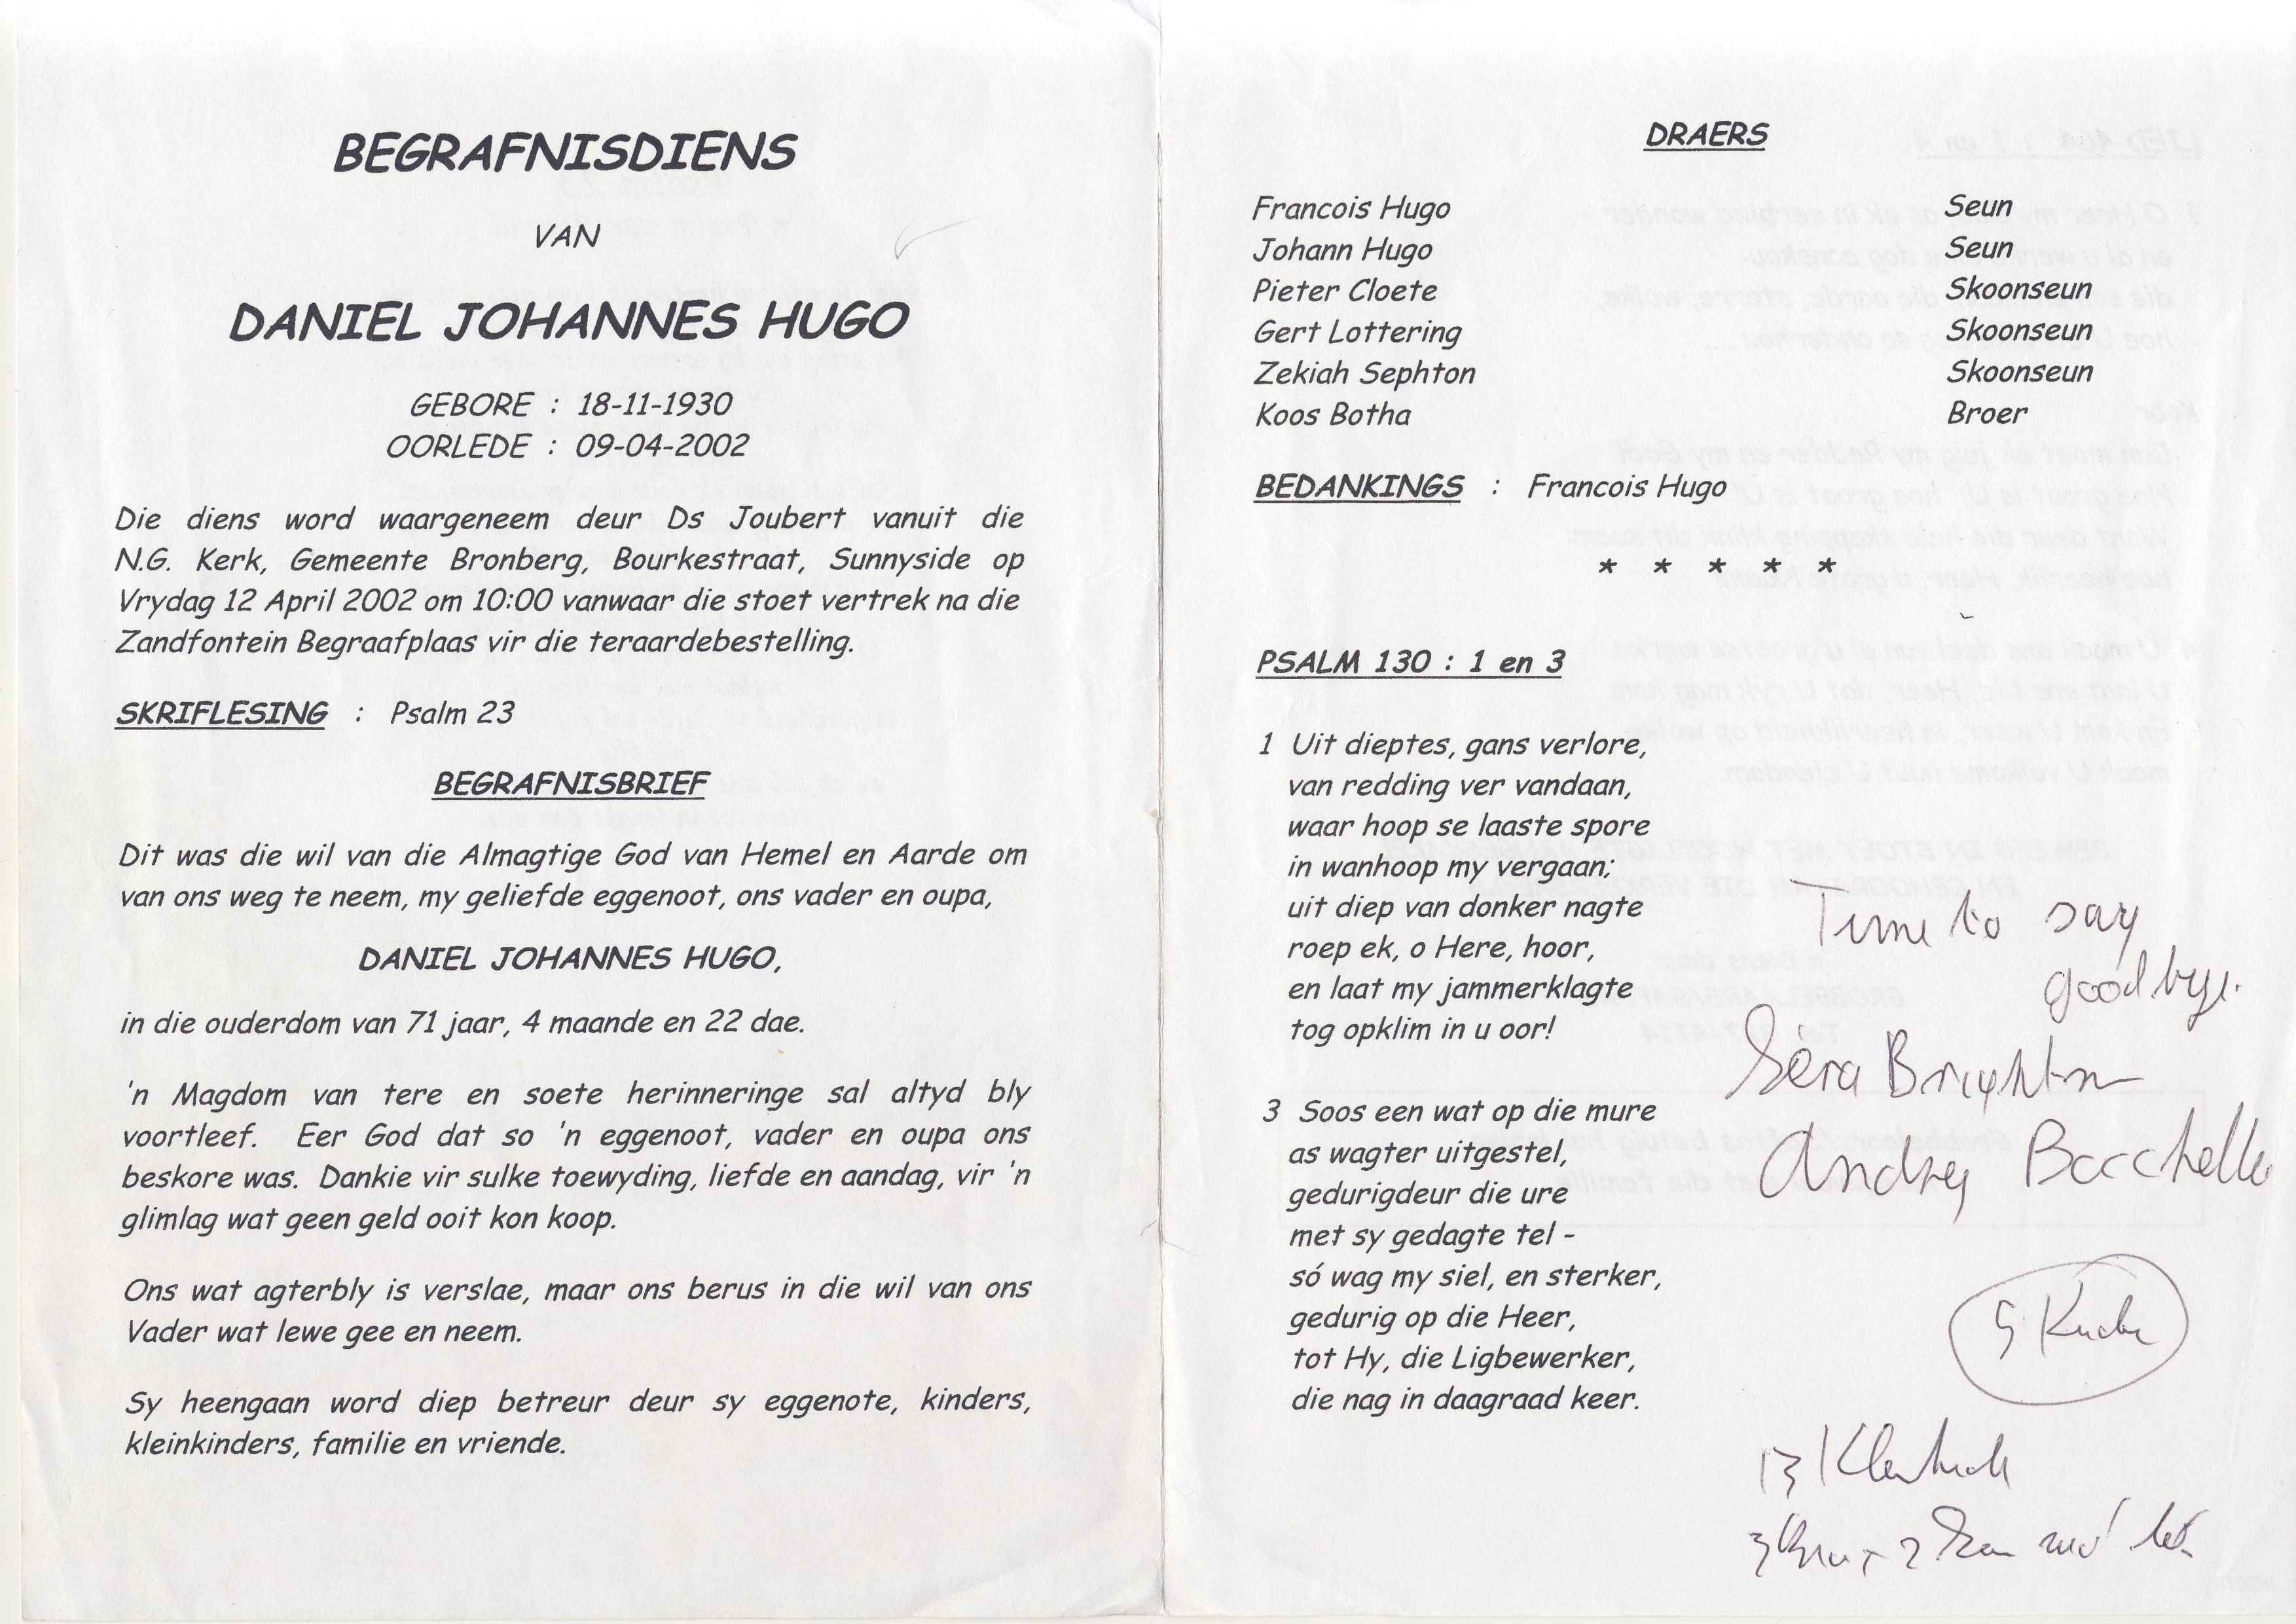 BEGRAFNISDIENS
VAN
DANIEL JOHANNES HUGO
GEBORE : 18-11-1930
OORLEDE : 09-04-2002
Die diens word waargeneem deur Ds Joubert vanuit die
N.G. Kerk, Gemeente Bronberg, Bourkestraat, Sunnyside op
Vrydag 12 April 2002 om 10:00 vanwaar die stoet vertrek na die
Zandfontein Begraafplaas vir die teraardebestelling.
SKRIFLESING : Psalm 23
BEGRAFNISBRIEF
Dit was die wil van die Almagtige God van Hemel en Aarde om
van ons weg te neem, my geliefde eggenoot, ons vader en oupa,
DANIEL JOHANNES HUGO,
in die ouderdom van 71 jaar, 4 maande en 22 dae.
'n Magdom van tere en soete herinneringe sal altyd bly
voortleef. Eer God dat so 'n eggenoot, vader en oupa ons
beskore was. Dankie vir sulke toewyding, liefde en aandag, vir 'n
glimlag wat geen geld ooit kon koop.
Ons wat agterbly is verslae, maar ons berus in die wil van ons
Vader wat lewe gee en neem.
Sy heengaan word diep betreur deur sy eggenote, kinders,
kleinkinders, familie en vriende.
DRAERS
Francois Hugo Seun
Johann Hugo Seun
Pieter Cloete Skoonseun
Gert Lottering Skoonseun
Zekiah Sephton Skoonseun
Koos Botha Broer
BEDANKINGS : Francois Hugo
* * * * *
PSALM 130 : 1 en 3
1 Uit dieptes, gans verlore,
van redding ver vandaan,
waar hoop se laaste spore
in wanhoop my vergaan;
uit diep van donker nagte
roep ek, o Here, hoor,
en laat my jammerklagte
tog opklim in u oor!
3 Soos een wat op die mure
as wagter uitgestel,
gedurigdeur die ure
met sy gedagte tel -
só wag my siel, en sterker,
gedurig op die Heer,
tot Hy, die Ligbewerker,
die nag in daagraad keer.
Time to say
goodbye.
Sera Brighton
Andrey
5
13